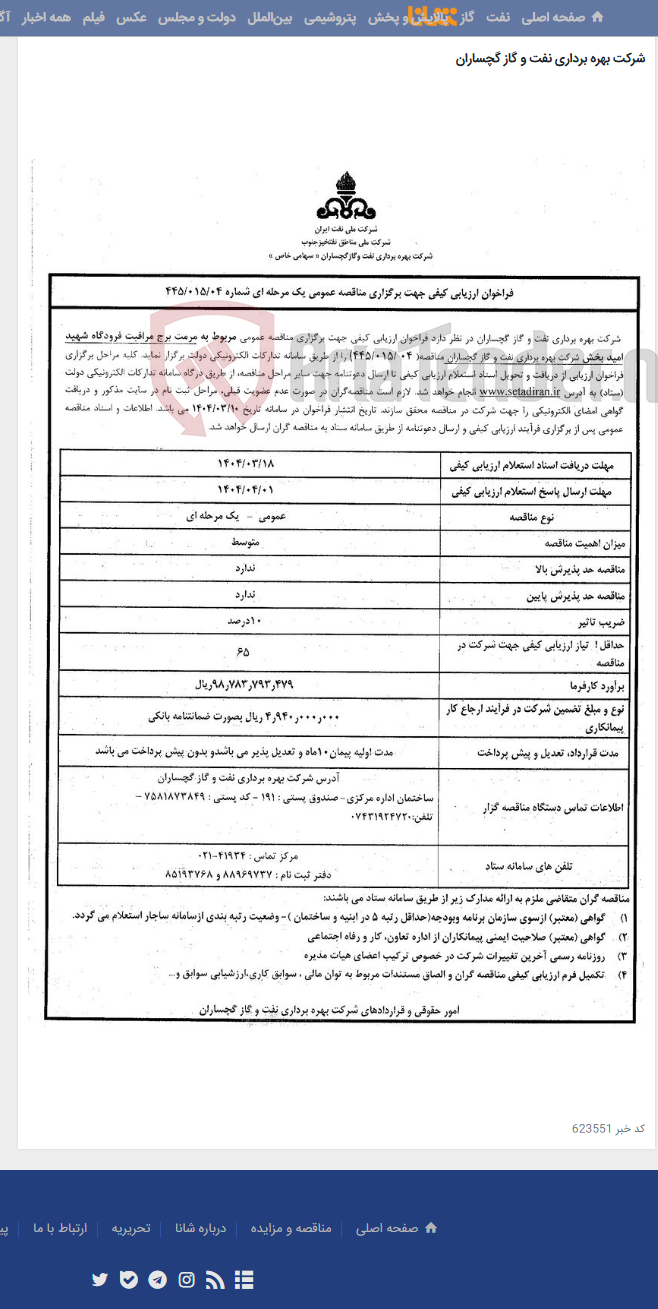 صفحه اصلی نفت گاز پالایش و پخش پتروشیمی بین‌الملل دولت و مجلس عکس فیلم همه اخبار
شرکت بهره برداری نفت و گاز گچساران
شرکت ملی نفت ایران
شرکت ملی مناطق نفتخیز جنوب
شرکت بهره برداری نفت وگاز گچساران « سهامی خاص »
فراخوان ارزیابی کیفی جهت برگزاری مناقصه عمومی یک مرحله ای شماره ۴۴۵/۰۱۵/۰۴
شرکت بهره برداری نفت و گاز گچساران در نظر دارد فراخوان ارزیابی کیفی جهت برگزاری مناقصه عمومی مربوط به مرمت برج مراقبت فرودگاه شهید
امید بخش شرکت بهره برداری نفت و گاز گچساران مناقصه( ۴۴۵/۰۱۵/۰۴) را از طریق سامانه تدارکات الکترونیکی دولت برگزار نماید. کلیه مراحل برگزاری
فراخوان ارزیابی از دریافت و تحویل اسناد استعلام ارزیابی کیفی تا ارسال دعوتنامه جهت سایر مراحل مناقصه، از طریق درگاه سامانه تدارکات الکترونیکی دولت
(ستاد) به آدرس www.setadiran.ir انجام خواهد شد. لازم است مناقصه‌گران در صورت عدم عضویت قبلی، مراحل ثبت نام در سایت مذکور و دریافت
گواهی امضای الکترونیکی را جهت شرکت در مناقصه محقق سازند. تاریخ انتشار فراخوان در سامانه تاریخ ۱۴۰۴/۰۳/۱۰ می باشد. اطلاعات و اسناد مناقصه
عمومی پس از برگزاری فرآیند ارزیابی کیفی و ارسال دعوتنامه از طریق سامانه ستاد به مناقصه گران ارسال خواهد شد.
مهلت دریافت اسناد استعلام ارزیابی کیفی ۱۴۰۴/۰۳/۱۸
مهلت ارسال پاسخ استعلام ارزیابی کیفی ۱۴۰۴/۰۴/۰۱
نوع مناقصه عمومی – یک مرحله ای
میزان اهمیت مناقصه متوسط
مناقصه حد پذیرش بالا ندارد
مناقصه حد پذیرش پایین ندارد
ضریب تاثیر ۱۰درصد
حداقل ! تیاز ارزیابی کیفی جهت شرکت در
مناقصه ۶۵
برآورد کارفرما ۹۸٫۷۸۳٫۷۹۳٫۴۷۹ریال
نوع و مبلغ تضمین شرکت در فرآیند ارجاع کار
پیمانکاری ۴٫۹۴۰٫۰۰۰٫۰۰۰ ریال بصورت ضمانتنامه بانکی
مدت قرارداد، تعدیل و پیش پرداخت مدت اولیه پیمان۱۰ماه و تعدیل پذیر می باشدو بدون پیش پرداخت می باشد
اطلاعات تماس دستگاه مناقصه گزار آدرس شرکت بهره برداری نفت و گاز گچساران
ساختمان اداره مرکزی- صندوق پستی : ۱۹۱ - کد پستی : ۷۵۸۱۸۷۳۸۴۹ –
تلفن:۰۷۴۳۱۹۲۴۷۲۰
تلفن های سامانه ستاد مرکز تماس : ۴۱۹۳۴-۰۲۱
دفتر ثبت نام : ۸۸۹۶۹۷۳۷ و ۸۵۱۹۳۷۶۸
مناقصه گران متقاضی ملزم به ارائه مدارک زیر از طریق سامانه ستاد می باشند:
۱) گواهی (معتبر) ازسوی سازمان برنامه وبودجه(حداقل رتبه ۵ در ابنیه و ساختمان )- وضعیت رتبه بندی ازسامانه ساجار استعلام می گردد.
۲) گواهی (معتبر) صلاحیت ایمنی پیمانکاران از اداره تعاون، کار و رفاه اجتماعی
۳) روزنامه رسمی آخرین تغییرات شرکت در خصوص ترکیب اعضای هیات مدیره
۴) تکمیل فرم ارزیابی کیفی مناقصه گران و الصاق مستندات مربوط به توان مالی ، سوابق کاری،ارزشیابی سوابق و...
امور حقوقی و قراردادهای شرکت بهره برداری نفت و گاز گچساران
کد خبر 623551
صفحه اصلی مناقصه و مزایده درباره شانا تحریریه ارتباط با ما